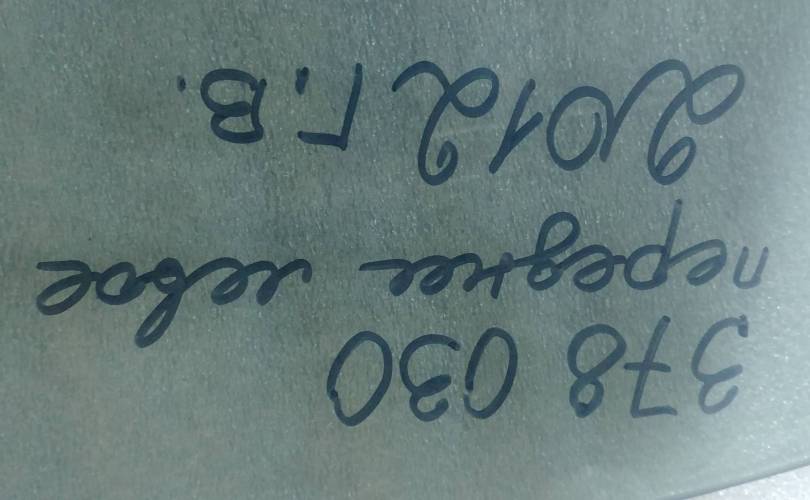 378 030
переднее левое
2012 Г.В.